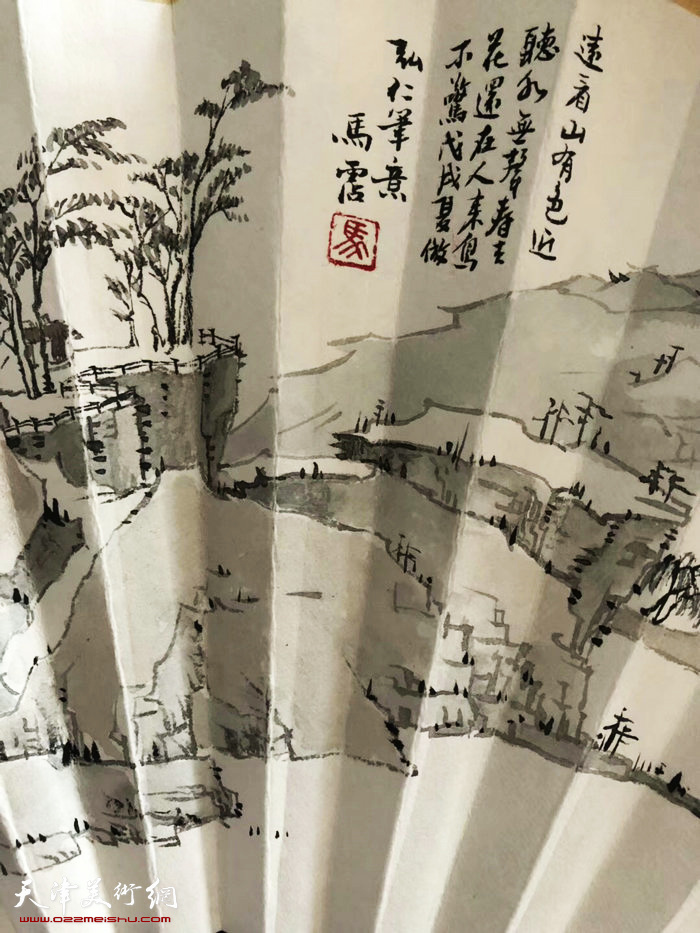 遠看山有色近
聽水無聲春去
花還在人来鳥
不驚戊戌夏倣
弘仁筆意
馬霑
馬
天津美術網
www.022meishu.com